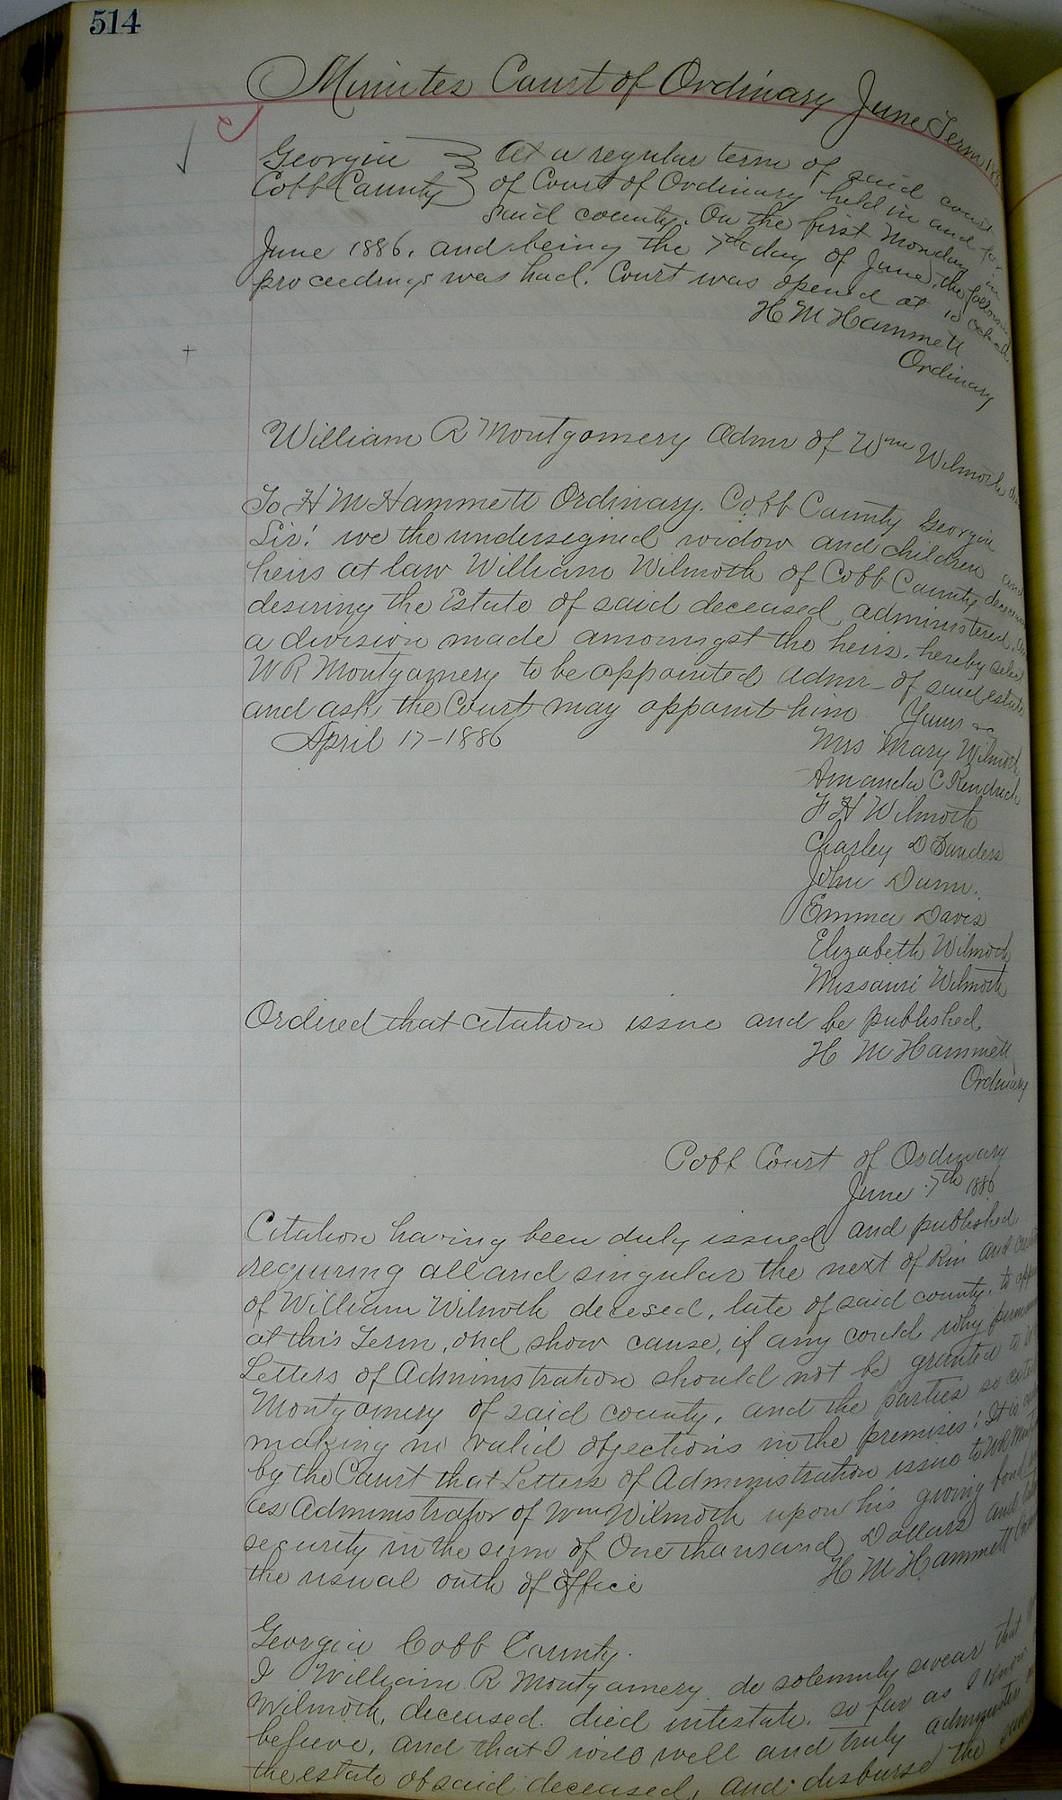 514
Minutes Court of Ordinary June Term
Georgia
Cobb County
At a regular term of said court
of Court of Ordinary held in and for
said county. On the first Monday in
June 1886, and being the 7th day of June, the following
proceedings was had. Court was opened at 10 oclock
H M Hammett
Ordinary
William R Montgomery Admr of Wm Wilmoth
To H M Hammett Ordinary. Cobb County Georgia
Sir! we the undersigned widow and children and
heirs at law William Wilmoth of Cobb County
desiring the Estate of said deceased administered,
a division made amomgst the heirs. hereby select
W R Montgomery to be appointed Admr of said estate
and ask the Court may appoint him Yours
April 17-1886
Mrs Mary Wilmoth
Amanda C Kendrick
F H Wilmoth
Charley D Sanders
John Dunn.
Emma Davis
Elizabeth Wilmoth
Missouri Wilmoth
Ordered that citation issue and be published
H M Hammett
Ordinary
Cobb Court of Ordinary
June 7th 1886
Citation having been duly issued and published
requiring all and singular the next of kin and
of William Wilmoth decesed, late of said county, to
at this Term, and show cause, if any could, why
Letters of Administration should not be granted to
Montgomery of said county, and the parties so
making no valid objections in the premises! It is
by the Court that Letters of Administration issue to W R
as Administrator of Wm Wilmoth upon his giving bond
security in the sum of One thousand Dollars and
the usual oath of office H M Hammett
Georgia Cobb County.
I William R Montgomery do solemnly swear that
Wilmoth, deceased. died intestate. so far as I know
believe, and that I will well and truly administer
the estate of said deceased, and disburse the same